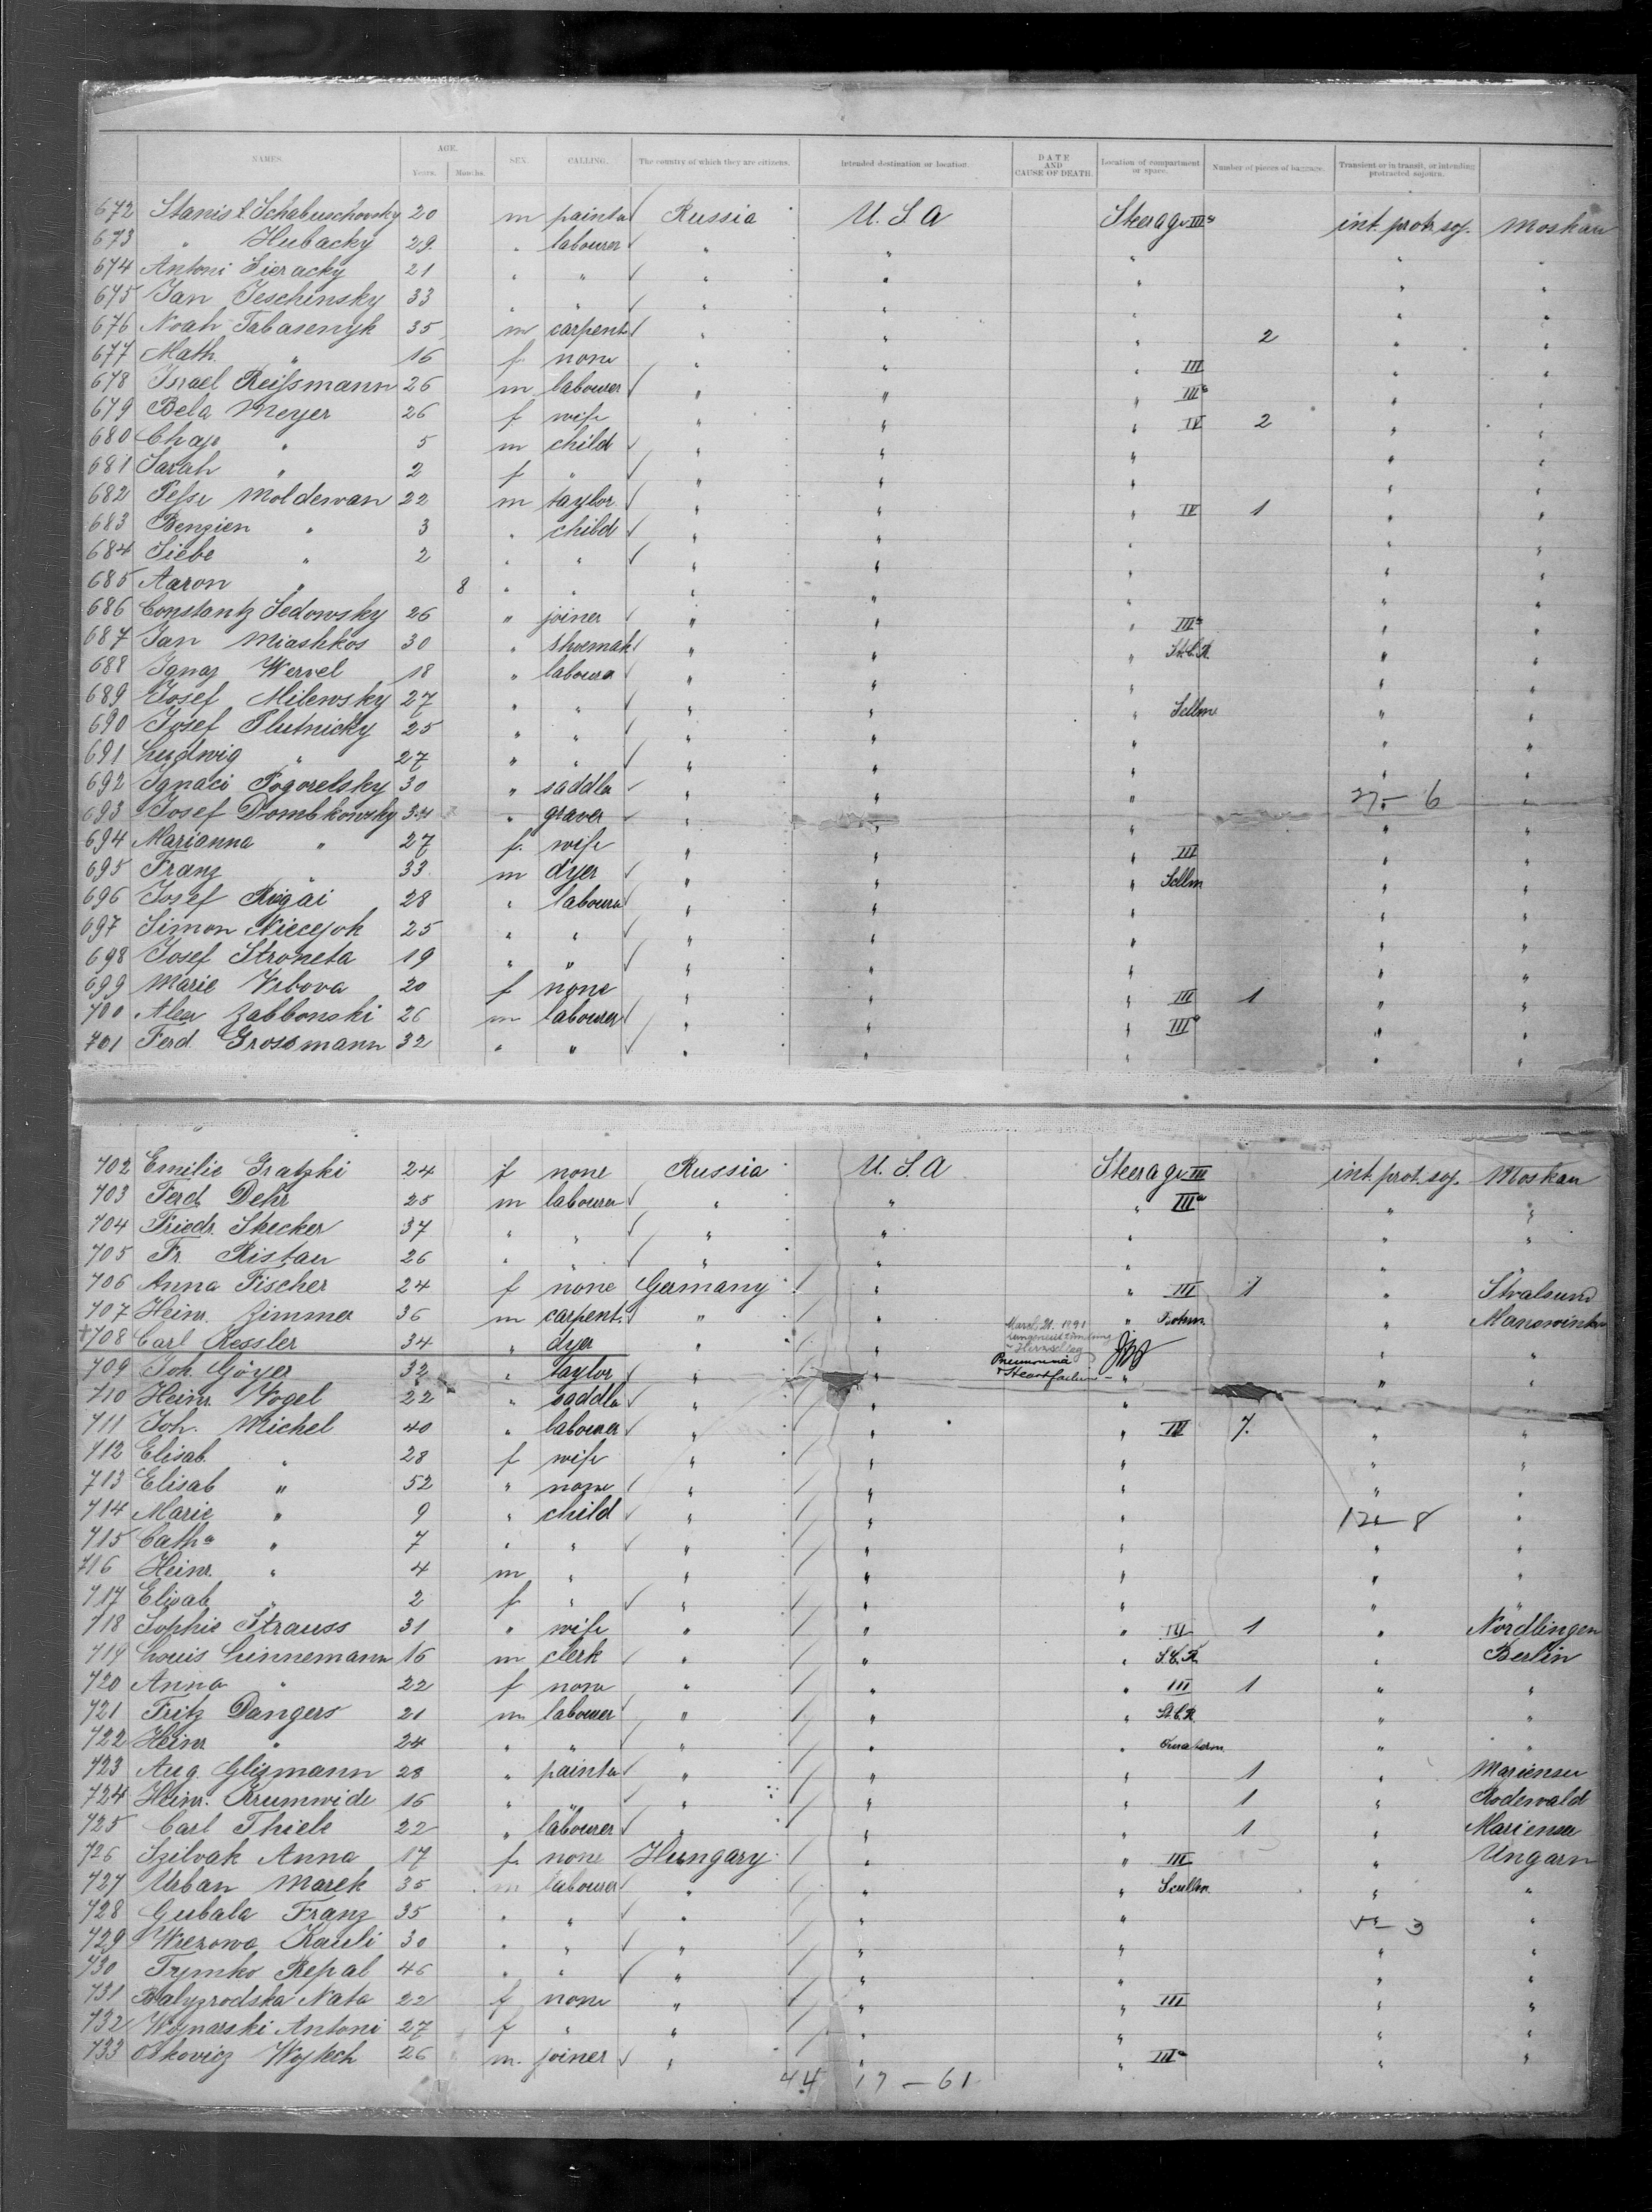 NAMES. AGE. Years. Months. SEX. CALLING. The country of which they are citizens. Intended destination or location. DATE AND CAUSE OF DEATH. Location of compartment or space. Number of pieces of baggage. Transient or in transit, or intending protracted sojourn.
672 Stanisl. Schabuschovsky 20 m painter Russia U. S. A Steerage IIIa int. prot. soj. Moskau
673 " Hubacky 29 " labourer " " " " "
674 Antoni Sieracky 21 " " " " " " "
675 Jan Jeschinsky 33 " " " " " " "
676 Noah Tabasenyk 35 m carpent. " " " 2 " "
677 Math. " 16 f none " " " III " "
678 Israel Reissmann 26 m labourer " " " IIIa " "
679 Bela Meyer 26 f wife " " " IV 2 " "
680 Chaje " 5 m child " " " " "
681 Sarah " 2 f " " " " " "
682 Pesse Moldewan 22 m taylor " " " IV 1 " "
683 Benzien " 3 " child " " " " "
684 Siebe " 2 " " " " " " "
685 Aaron " 8 " " " " " " "
686 Constantz Sedowsky 26 " joiner " " " IIIa " "
687 Jan Miashkos 30 " shoemak " " " St.C.R. " "
688 Ignaz Wervel 18 " labourer " " " " "
689 Josef Milewsky 27 " " " " " Sellm " "
690 Josef Plutnicky 25 " " " " " " "
691 Ludwig " 27 " " " " " " "
692 Ignaci Pogorelsky 30 " saddler " " " 27 - 6 "
693 Josef Dombkowsky 34 " graver " " " " "
694 Marianna " 27 f. wife " " " III " "
695 Franz " 33 m dyer " " " Sellm " "
696 Josef Rogai 28 " labourer " " " " "
697 Simon Niecejoh 25 " " " " " " "
698 Josef Stroneta 19 " " " " " " "
699 Marie Vrbova 20 f none " " " III 1 " "
700 Alex Zabbonski 26 m labourer " " " IIIa " "
701 Ferd. Grossmann 32 " " " " " " "
702 Emilie Gratzki 24 f none Russia U. S. A Steerage III int. prot. soj. Moskau
703 Ferd. Dehr 25 m labourer " " " IIIa " "
704 Friedr. Stecker 37 " " " " " " "
705 Fr. Ristau 26 " " " " " " "
706 Anna Fischer 24 f none Germany " " III 1 " Stralsund
707 Heinr. Zimmer 36 m carpent. " " " Bohm. "
+708 Carl Ressler 34 " dyer " " March 21. 1891 Lungenentzündung Herzschlag Pneumonia & Heartfailure " "
709 Joh. Göyer 32 " taylor " " " " "
710 Heinr. Vogel 22 " saddler " " " "
711 Joh. Michel 40 " labourer " " " IV 7. " "
712 Elisab. " 28 f wife " " " " "
713 Elisab " 52 " none " " " " "
714 Marie " 9 " child " " " 12 - 8 "
715 Catha " 7 " " " " " " "
716 Heinr. " 4 m " " " " " "
717 Elisab " 2 f " " " " " "
718 Sophie Strauss 31 " wife " " " IV 1 " Nördlingen
719 Louis Linnemann 16 m clerk " " " S.C.R. " Berlin
720 Anna " 22 f none " " " III 1 " "
721 Fritz Dangers 21 m labourer " " " St.C.R. " "
722 Heinr " 24 " " " " " " "
723 Aug. Glismann 28 " painter " " " 1 " Mariensee
724 Heinr. Krumwide 16 " " " " " 1 " Rodewald
725 Carl Thiele 22 " labourer " " " 1 " Mariensee
726 Szilvak Anna 17 f. none Hungary " " III " Ungarn
727 Urban Marek 35 m labourer " " " Scullm. " "
728 Gubala Franz 35 " " " " " 3 "
729 Wrezowa Kauli 30 " " " " " " "
730 Tymko Repal 46 " " " " " " "
731 Balyzrodska Nata 22 f none " " " III " "
732 Wojnarski Antoni 27 f " " " " " "
733 Oskovicz Wojtech 26 m. joiner " " " IIIa " "
44 17 - 61